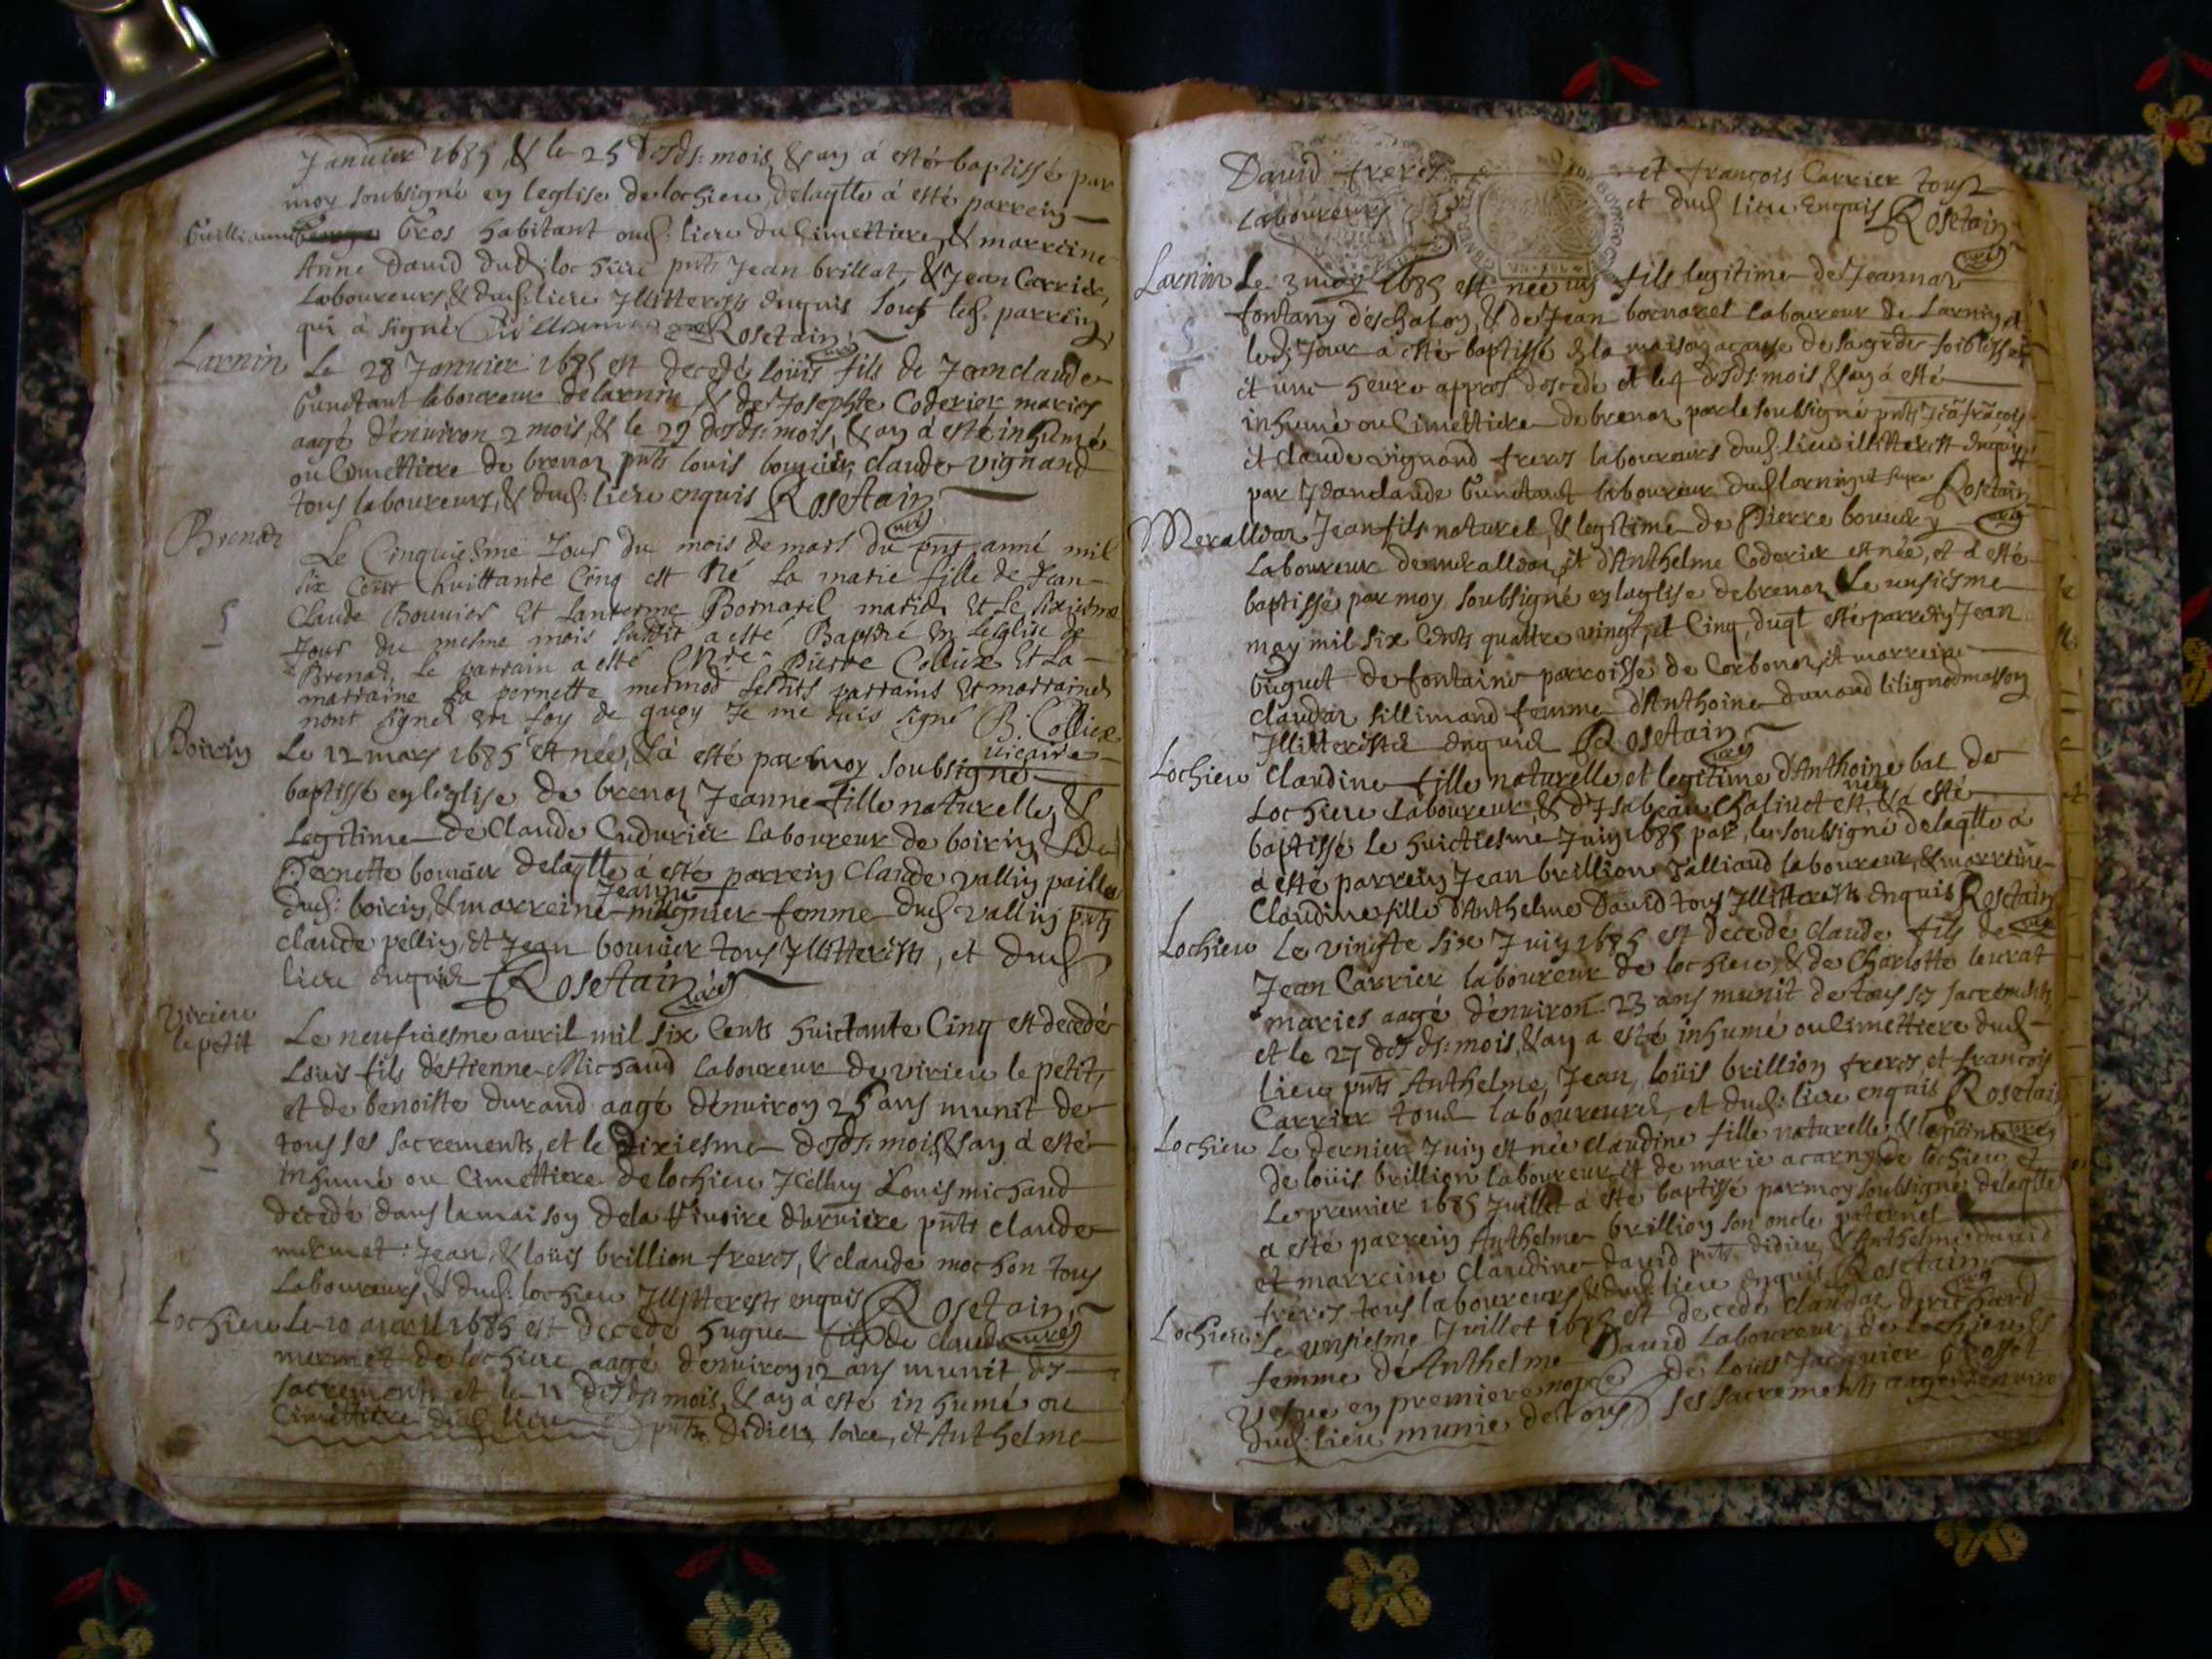 Januier 1685, & le 25 desds: mois & an á esté baptissé par
moy soubsigné en leglise de lochieu delaqlle á esté parrein
Guilliaume Gros habitant oud: lieu du Cimettiere & marreine
Anne Dauid dud: lochieu pnts Jean brillat, & Jean Carrier,
Laboureurs, & dud: lieu Illitterests enquis sous led. parrein
qui á signé Guilliaume Rosetain
curé
Larnin Le 28 Januier 1685 est decedé loüis fils de Jeanclaude
laboureur delarnin & de Josephte Coderier maries
aagé d'enuiron 2 mois, & le 29 desds: mois, & an á esté inhumé
ou Cimettiere de brenaz pnts louis bouuier, claude vignand
tous laboureurs, & dud: lieu enquis Rosetain
curé
Brenaz Le Cinquiesme Jour du mois de mars du pnt anné mil
six cent huittante Cinq est Né la marie fille de Jean
Claude Bouuier Et Lanterme Bornarel mariés Et Le sixiesme
Jour du mesme mois susdit a esté Baptisé En Leglise de
Brenaz, Le parrain a esté Pierre Colliex Et La
marraine La pernette mermod lesdits parrains Et marraines
nont signés En foy de quoy Je me suis signé B: Colliex
vicaire
Boirin Le 12 mars 1685 est née, & á esté par moy soubsigné
baptissé en leglise de brenaz Jeanne fille naturelle, &
Legitime de Claude Cudurier Laboureur de boirin, & de
Pernette bouuier delaqlle á esté parrein Claude vallin paille
Jeanne
dud: boirin, & marreine mugnier femme dud vallin pnts
claude pellin, Et Jean bouuier tous Illitterests, et dud
lieu enquis Rosetain
curé
Virieu
le petit Le neufuiesme auril mil six Cents huictante Cinq est decedé
Loüis fils d'éstienne Michaud laboureur de virieu le petit,
et de benoiste durand aagé d'énuiron 25 ans munit de
tous ses sacrements, et le dixiesme desds: mois, & an á esté
inhumé ou Cimettiere delochieu Jcelluy Louis michaud
décedé dans la maison dela pnts claude
mermet: Jean, & loüis brillion freres, & claude mochon tous
Laboureurs, & dud: lochieu Illitterests enquis Rosetain
curé
Lochieu Le 10 auril 1685 est decedé hugue fils de claude
mermet de lochieu aagé d'énuiron 12 ans munit des
sacrements et le 11 desds: mois, & an á esté inhumé ou
Cimettiere dud: lieu pnts didier, loüis, et Anthelme
Dauid freres et françois Carrier tous
Laboureurs et dud: lieu Enquis Rosetain
curé
Larnin Le 3 may 1685 est née un fils legitime de Jeannaz
fontany & de Jean bornarel laboureur de Larnin, &
led: Jour á esté baptissé & la maison acause de sa grde foiblesse
et une heure appres descedé et le 4 desds: mois, & an á esté
inhumé ou Cimettiere de brenaz par le soubsigné pnts Jeã frãçois
et claude vignand freres laboureurs dud: lieu illitterests enquis
par Jeanclaude laboureur dud larnin Rosetain
curé
Merallioz Jean fils naturel, & legitime de Pierre bouuier
Laboureur de merallioz, et d'Anthelme Coderier est née, et á esté
baptissé par moy soubsigné en leglise de brenaz Le unsiesme
may mil six Cents quattre vingt, et Cinq, duqt esté parrein Jean
buguet de fontaine parroisse de Corbonoz, et marreine
claudaz sillimand femme d'Anthoine
Illitterests enquis Rosetain
curé
Lochieu Claudine fille naturelle, et legitime d'Anthoine bal de
née
Lochieu Laboureur, & d'Isabeau Chaliuet est, & á esté
baptissé le huictiesme Juin 1685 par le soubsigné delaqlle á
á esté parrein Jean brillion Talliaud laboureur, & marreine
Claudine fille d'Anthelme Dauid tous Illitterests enquis Rosetain
curé
Lochieu Le vingtesix Juin 1685 est decedé claude fils de
Jean Carrier laboureur de lochieu, & de Charlotte leurat
maries aagé d'énuiron 23 ans munit de tous ses sacrements
et le 27 desds: mois, & an a esté inhumé ou Cimettiere dud
lieu pnts Anthelme, Jean, loüis brillion freres, et françois
Carrier tous laboureurs, et dud: lieu enquis Rosetain
curé
Lochieu Le dernier Juin est née claudine fille naturelle, & legitime
de loüis brillion laboureur, et de marie acarny de lochieu, et
Le premier 1685 Juillet á esté baptissé par moy soubsigné delaqlle
á esté parrein Anthelme brillion son oncle paternel
et marreine Claudine dauid pnts didier, & Anthelme dauid
freres tous laboureurs, & dud: lieu enquis Rosetain
curé
Lochieu Le unsiesme Juillet 1685 est decede claudaz
femme de Anthelme Dauid Laboureur de Lochieu, &
vefue en premiere nopce de Louis Jacquier Grosset
dud: lieu munie de tous ses sacrements